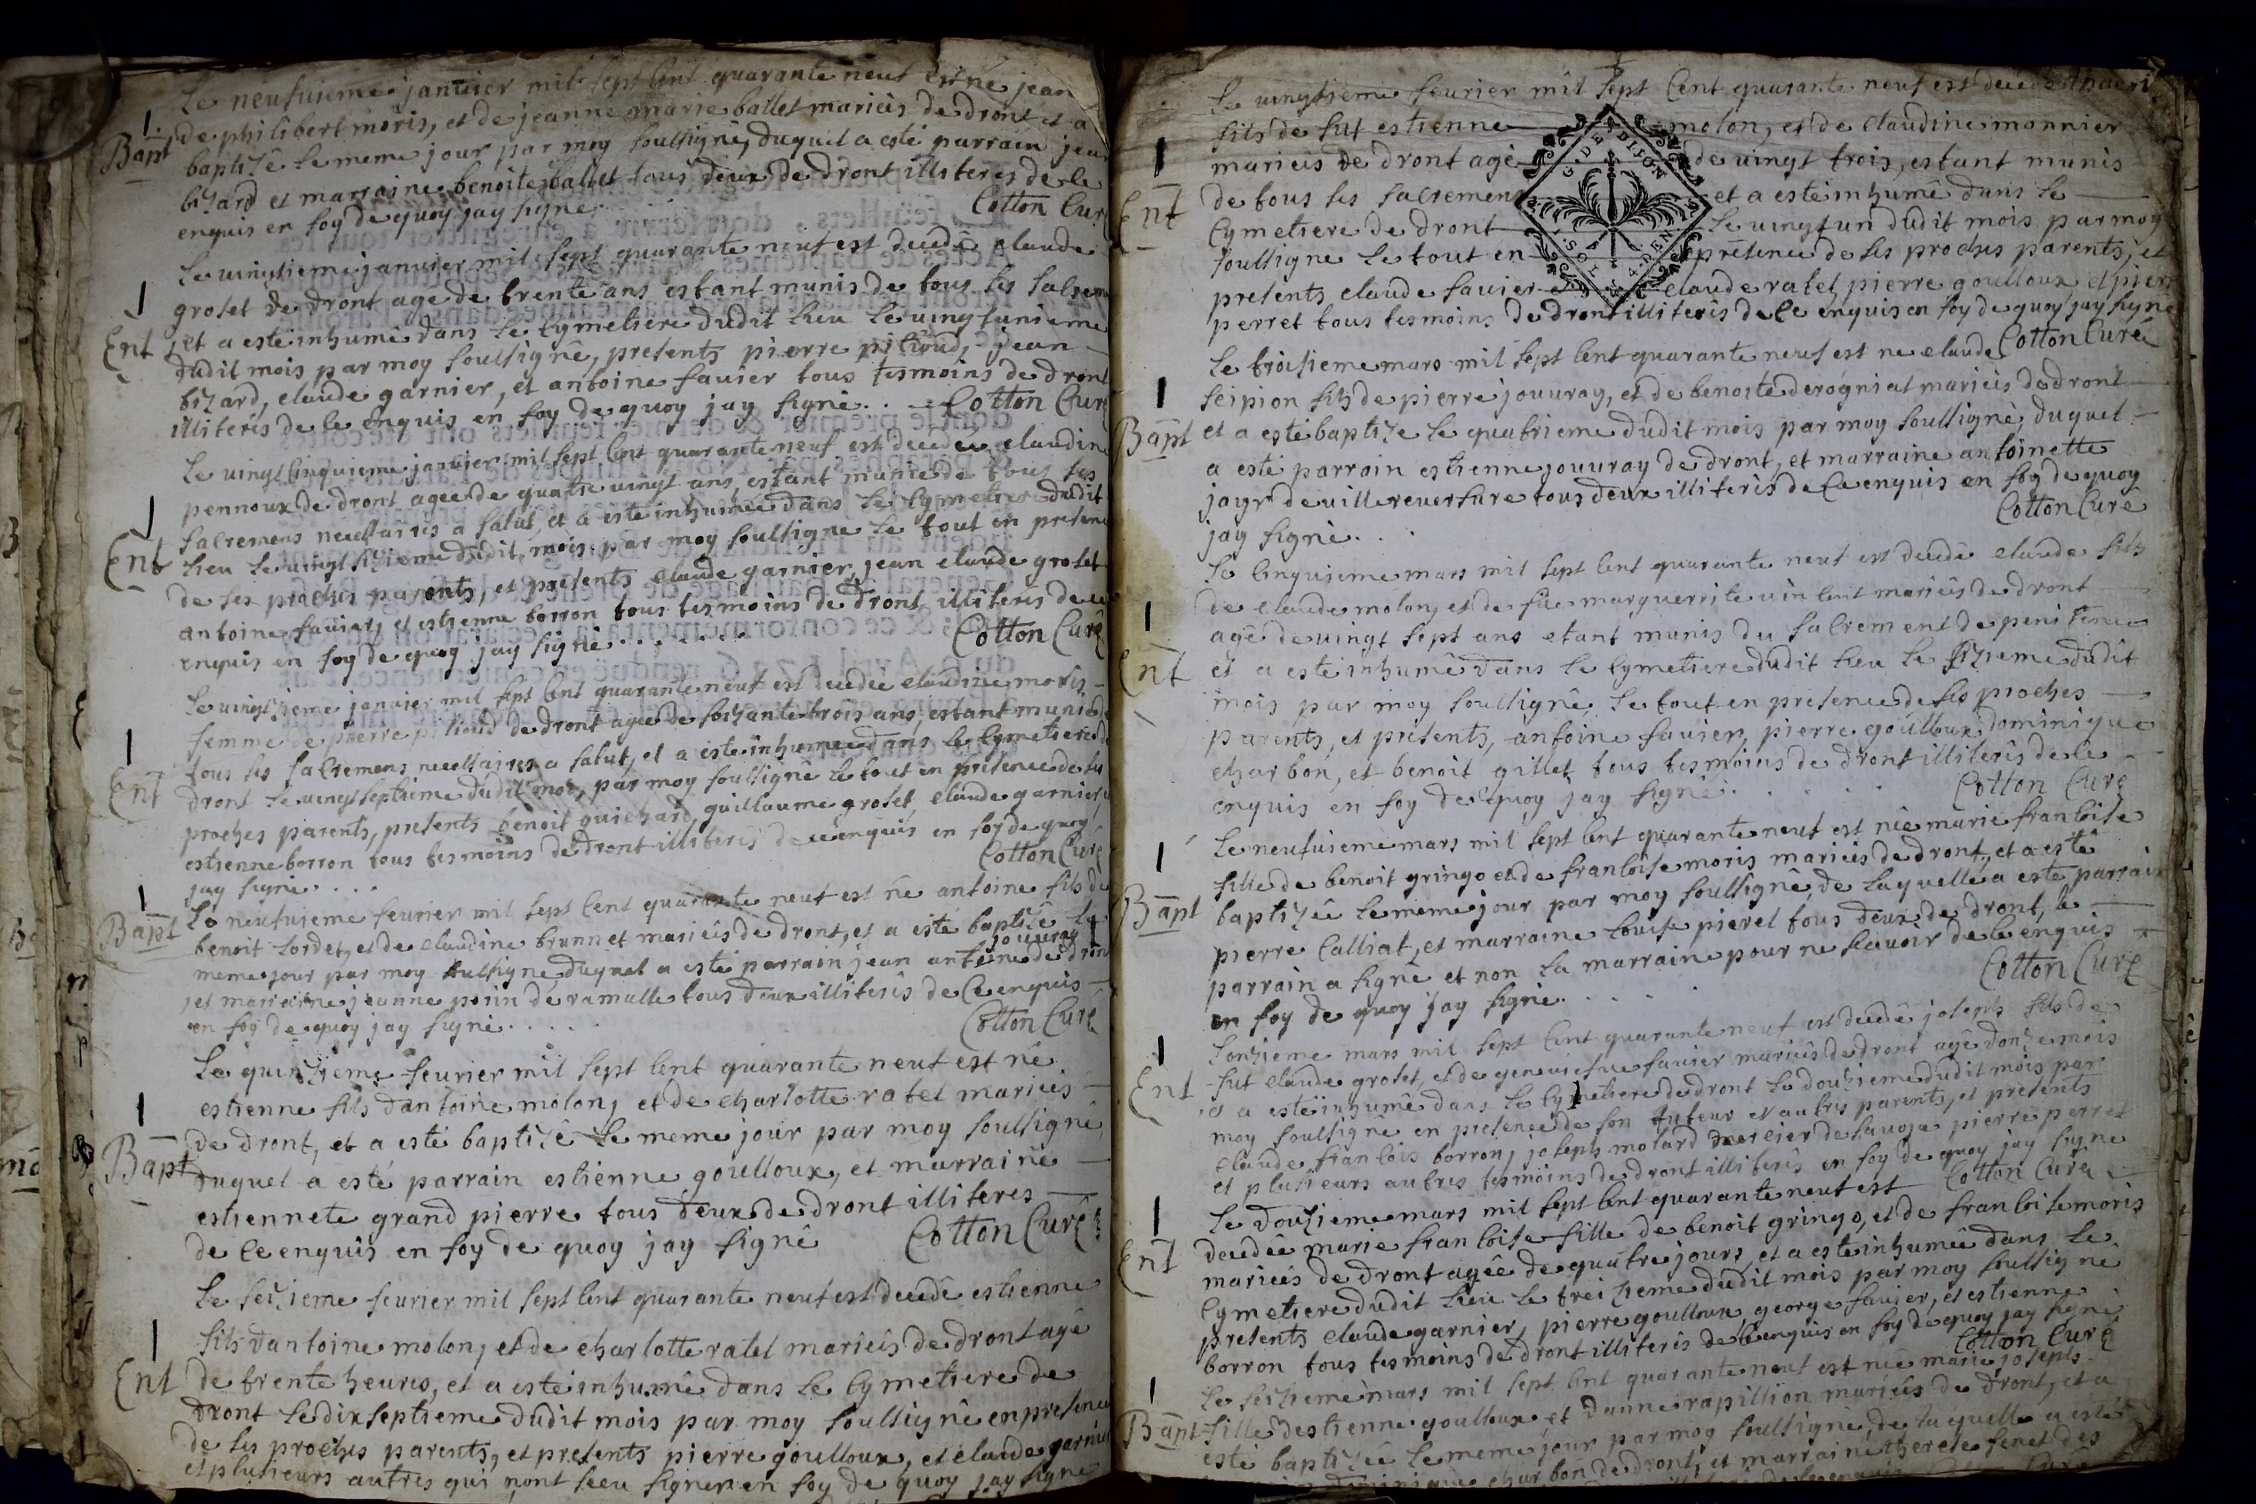 Le neufuieme januier mil sept cent quarante neuf est né jean
Bapt de philibert moris, et de jeanne marie ballet mariés de dront et a
baptizé le meme jour par moy soussigné, duquel a esté parrain jean
bizard et marraine benoite ballet tous deux de dront illiterés de ce
enquis en foy de quoy jay signé
Cotton Curé
Le uingtieme januier mil sept quarante neuf est decedé claude
groset de dront agé de trente ans estant munis de tous les sacremens
Ent et a esté inhumé dans le cymetiere dudit lieu le uingtunieme
dudit mois par moy soussigné, presents pierre pilioud, jean
bizard, claude garnier, et antoine fauier tous tesmoins de dront
illiterés de ce enquis en foy de quoy jay signé . . Cotton Curé
Le uingt cinquieme januier mil sept cent quarante neuf est decedée claudine
pennoux de dront agée de quatre uingt ans, estant munie de tous les
sacremens necessaires a salut, et a esté inhumée dans le cymetiere dudit
Ent lieu le uingt sizieme dudit mois par moy soussigné le tout en presence
de ses proches parents, et presents claude garnier, jean claude groset
antoine fauier, et estienne borron tous tesmoins de dront, illiterés de ce
enquis en foy de quoy jay signé . . . . . .
Cotton Curé
Le uingtsizieme januier mil sept cent quarante neuf est decedée claudine moris
femme de pierre pilioud de dront agée de soizante trois ans, estant munie de
tous les sacremens necessaires a salut, et a esté inhumée dans le cymetiere de
Ent dront le uingt septieme dudit mois, par moy soussigné le tout en presence de ses
proches parents, presents benoit guichard, guillaume groset, claude garnier
estienne borron tous tesmoins de dront illiterés de ce enquis en foy de quoy
jay signé . . . .
Cotton Curé
Le neufuieme feurier mil sept cent quarante neuf est né antoine fils de
Bapt benoit lordet, et de claudine brunnet mariés de dront, et a esté baptizé le
jouuray
meme jour par moy soussigné duquel a esté parrain jean antoine de dront
et marraine jeanne perin de ramasse tous deux illiterés de ce enquis
en foy de quoy jay signé . . . . .
Cotton Curé
Le quinzieme feurier mil sept cent quarante neuf est né
estienne fils dantoine molon, et de charlotte ratel mariés
de dront, et a esté baptizé le meme jour par moy soussigné,
Bapt duquel a esté parrain estienne goulloux, et marraine
estiennete grand pierre tous deux de dront illiteres
de ce enquis en foy de quoy jay signé
Cotton Curé
Le seizieme feurier mil sept cent quarante neuf est decedé estienne
fils dantoine molon, et de charlotte ratel mariés de dront agé
Ent de trente heures, et a esté inhumé dans le cymetiere de
dront le dix septieme dudit mois par moy soussigné en presence
de ses proches parents, et presents pierre goulloux, et claude garnier
et plusieurs autres qui nont sceu signer en foy de quoy jay signé
Le uingtieme feurier mil sept cent quarante neuf est decedé
fils de fut estienne molon, et de claudine monnier
mariés de dront agé de uingt trois, estant munis
Ent de tous les sacremens et a esté inhumé dans le
Cymetiere de dront le uingt un dudit mois par moy
soussigné le tout en presence de ses proches parents, et
presents claude fauier claude ratel pierre goulloux et pierre
perret tous tesmoins de dront illiterés de ce enquis en foy de quoy jay signé
G. DE DIJON
Cotton Curé
Le troisieme mars mil sept cent quarante neuf est né claude
scipion fils de pierre jouuray, et de benoite derogniat mariés de dront
Bapt et a esté baptizé le quatrieme dudit mois par moy soussigné, duquel
a esté parrain estienne jouuray de dront, et marraine antoinette
jayr de uillereuersure tous deux illiterés de ce enquis en foy de quoy
jay signé . . .
Cotton Curé
Le cinquieme mars mil sept cent quarante neuf est decedé claude fils
de claude molon, et de fue marguerrite uincent mariés de dront
agé de uingt sept ans etant munis du sacrement de penitence
Ent et a esté inhumé dans le cymetiere dudit lieu le sizieme dudit
mois par moy soussigné, le tout en presence de ses proches
parents, et presents, antoine fauier, pierre goulloux, dominique
charbon, et benoit gillet tous tesmoins de dront illiterés de ce
enquis en foy de quoy jay signé . . . . .
Cotton Curé
Le neufuieme mars mil sept cent quarante neuf est née marie francoise
fille de benoit gringo et de francoise moris mariés de dront, et a esté
Bapt baptizée le meme jour par moy soussigné, de laquelle a esté parrain
pierre Calliat, et marraine louise pierel tous deux de dront, le
parrain a signé et non la marraine pour ne scauoir de ce enquis
en foy de quoy jay signé . . . . .
Cotton Curé
Lonzieme mars mil sept cent quarante neuf est decedé joseph fils de
fut claude groset, et de geneuiefue fauier mariés de dront agé donze mois
Ent et a esté inhumé dans le cymetiere de dront le douzieme dudit mois par
moy soussigné en presence de son tuteur et autres parents, et presents
claude francois borron, joseph molard mercier de sauoye pierre perret
et plusieurs autres tesmoins de dront illiterés en foy de quoy jay signé
Cotton Curé
Le douzieme mars mil sept cent quarante neuf est
decedée marie francoise fille de benoit gringo, et de francoise moris
Ent mariés de dront agée de quatre jours, et a esté inhumée dans le
cymetiere dudit lieu le treizieme dudit mois par moy soussigné
presents claude garnier, pierre goulloux, george fauier, et estienne
borron tous tesmoins de dront illiterés de ce enquis en foy de quoy jay signé
Cotton Curé
Le seizieme mars mil sept cent quarante neuf est née marie joseph
Bapt fille destienne goulloux et danne rapillion mariés de dront, et a
esté baptizée le meme jour par moy soussigné, de laquelle a esté
charbon de dront, et marraine therese fenet des